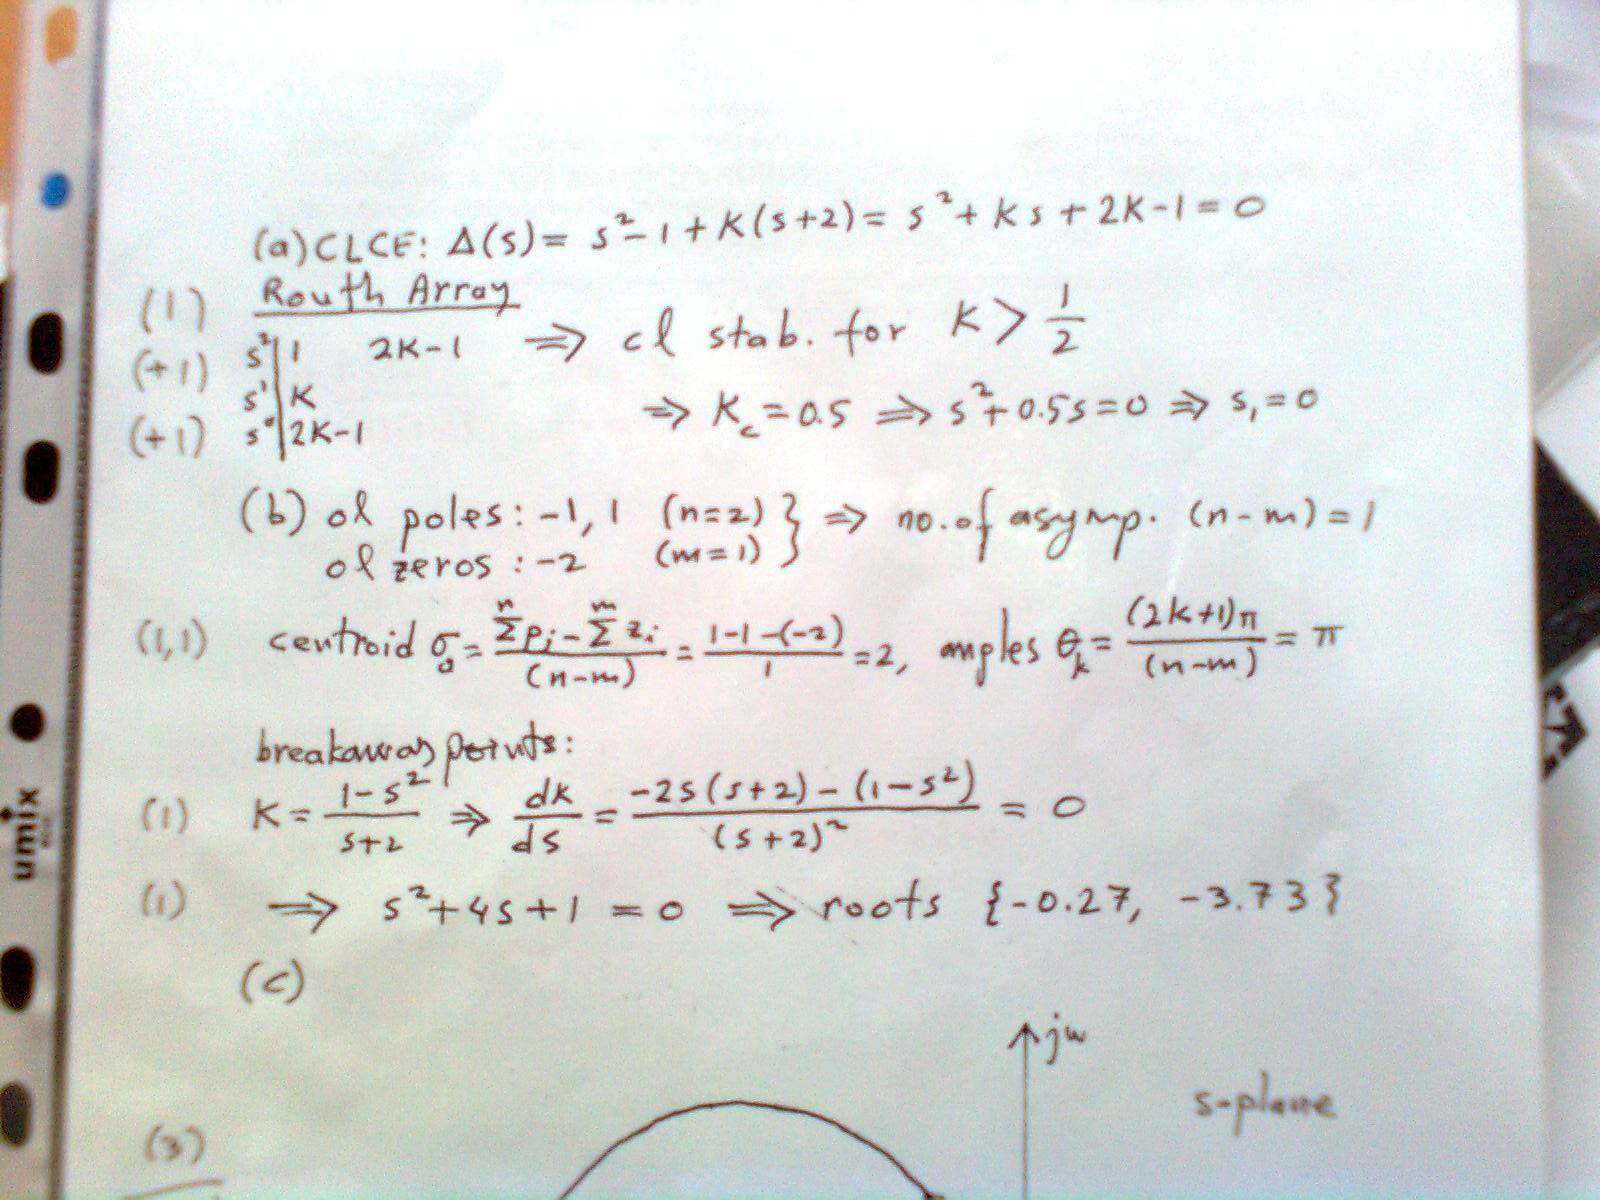 (a) CLCE: Δ(s) = s²-1+K(s+2) = s²+Ks+2K-1=0
(1) Routh Array
(+1) s² | 1 2K-1 ⇒ cl stab. for K > 1/2
s¹ | K ⇒ K_c=0.5 ⇒ s²+0.5s=0 ⇒ s₁=0
(+1) s⁰ | 2K-1
(b) ol poles: -1, 1 (n=2) } ⇒ no. of asymp. (n-m)=1
ol zeros: -2 (m=1)
(1,1) centroid σ₀ = (Σⁿ pᵢ - Σᵐ zᵢ)/(n-m) = (1-1-(-2))/1 = 2, angles θ_k = (2k+1)π/(n-m) = π
breakaway points:
(1) K = (1-s²)/(s+2) ⇒ dK/ds = (-2s(s+2)-(1-s²))/(s+2)² = 0
(1) ⇒ s²+4s+1 = 0 ⇒ roots {-0.27, -3.73}
(c)
jω
s-plane
(3)
umix